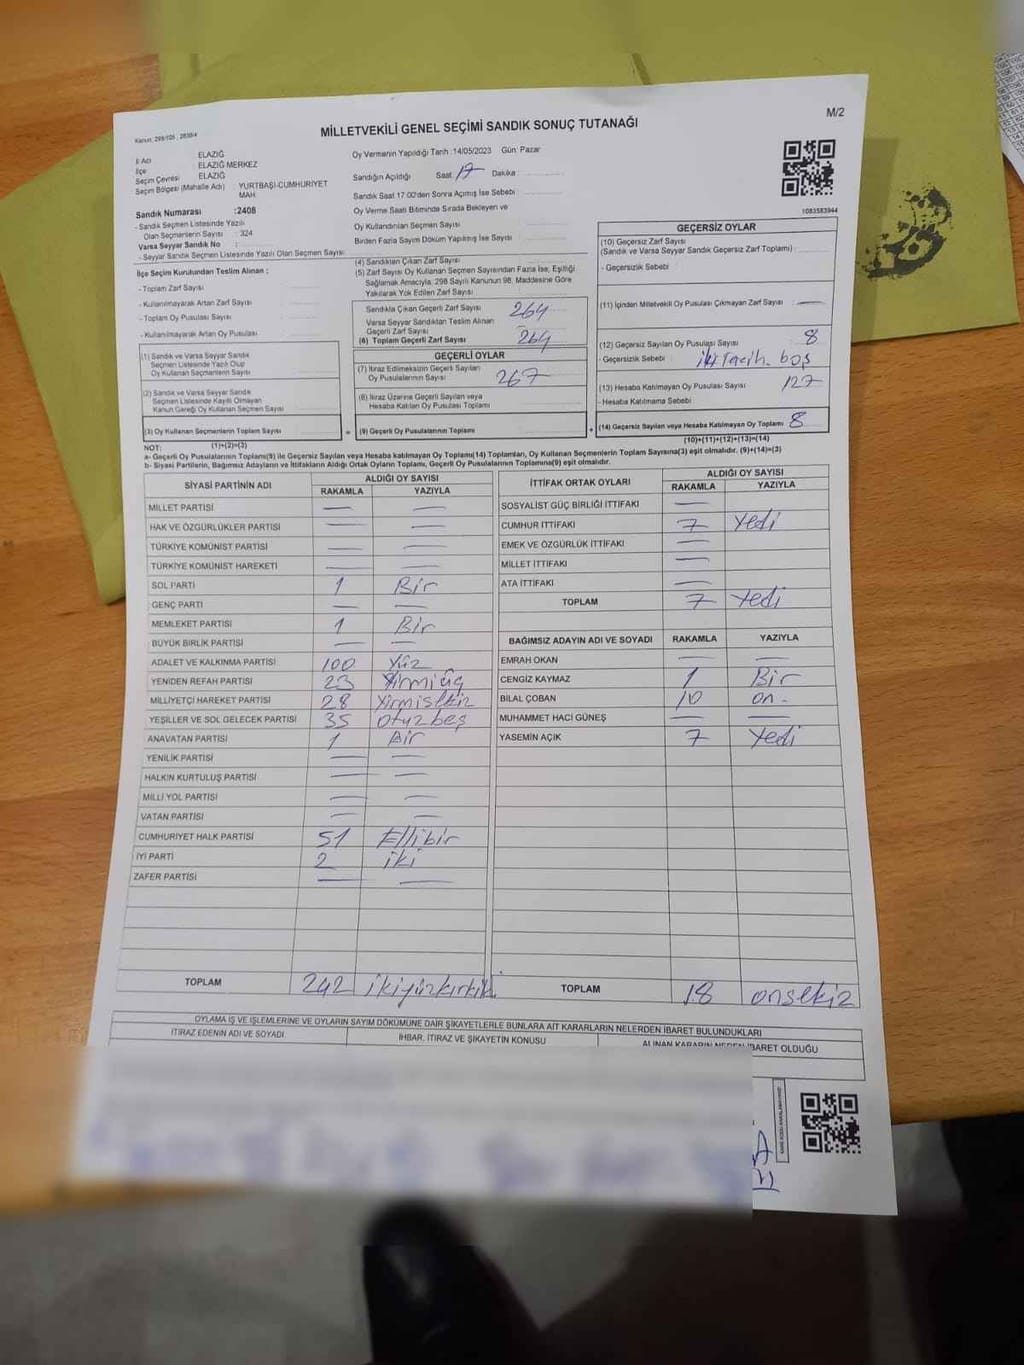 M/2
Kanun: 298/105 , 2839/4
MİLLETVEKİLİ GENEL SEÇİMİ SANDIK SONUÇ TUTANAĞI
İl Adı ELAZIĞ
İlçe ELAZIĞ MERKEZ
Seçim Çevresi ELAZIĞ
Seçim Bölgesi (Mahalle Adı) YURTBAŞI-CUMHURİYET MAH
Sandık Numarası :2408
- Sandık Seçmen Listesinde Yazılı
Olan Seçmenlerin Sayısı : 324
Varsa Seyyar Sandık No :
- Seyyar Sandık Seçmen Listesinde Yazılı Olan Seçmen Sayısı:
İlçe Seçim Kurulundan Teslim Alınan ;
- Toplam Zarf Sayısı
- Kullanılmayarak Artan Zarf Sayısı
- Toplam Oy Pusulası Sayısı
- Kullanılmayarak Artan Oy Pusulası
(1) Sandık ve Varsa Seyyar Sandık
Seçmen Listesinde Yazılı Olup
Oy Kullanan Seçmen Sayısı
(2) Sandık ve Varsa Seyyar Sandık
Seçmen Listesinde Kayıtlı Olmayan
Kanun Gereği Oy Kullanan Seçmen Sayısı
(3) Oy Kullanan Seçmenlerin Toplam Sayısı
Oy Vermenin Yapıldığı Tarih :14/05/2023 Gün: Pazar
Sandığın Açıldığı Saat 17 Dakika :
Sandık Saat 17:00'den Sonra Açılmış İse Sebebi :
Oy Verme Saati Bitiminde Sırada Bekleyen ve
Oy Kullandırılan Seçmen Sayısı
Birden Fazla Sayım Döküm Yapılmış İse Sayısı :
(4) Sandıktan Çıkan Zarf Sayısı
(5) Zarf Sayısı Oy Kullanan Seçmen Sayısından Fazla İse, Eşitliği
Sağlamak Amacıyla, 298 Sayılı Kanunun 98. Maddesine Göre
Yakılarak Yok Edilen Zarf Sayısı
Sandıkta Çıkan Geçerli Zarf Sayısı 264
Varsa Seyyar Sandıktan Teslim Alınan
Geçerli Zarf Sayısı
(6) Toplam Geçerli Zarf Sayısı 264
GEÇERLİ OYLAR
(7) İtiraz Edilmeksizin Geçerli Sayılan
Oy Pusulalarının Sayısı 267
(8) İtiraz Üzerine Geçerli Sayılan veya
Hesaba Katılan Oy Pusulaları Toplamı
= (9) Geçerli Oy Pusulalarının Toplamı +
1083583944
GEÇERSİZ OYLAR
(10) Geçersiz Zarf Sayısı
(Sandık ve Varsa Seyyar Sandık Geçersiz Zarf Toplamı) :
- Geçersizlik Sebebi :
(11) İçinden Milletvekili Oy Pusulası Çıkmayan Zarf Sayısı : —
(12) Geçersiz Sayılan Oy Pusulası Sayısı 8
- Geçersizlik Sebebi : boş
(13) Hesaba Katılmayan Oy Pusulası Sayısı 127
- Hesaba Katılmama Sebebi
(14) Geçersiz Sayılan veya Hesaba Katılmayan Oy Toplamı 8
NOT: (1)+(2)=(3) (10)+(11)+(12)+(13)=(14)
a- Geçerli Oy Pusulalarının Toplamı(9) ile Geçersiz Sayılan veya Hesaba Katılmayan Oy Toplamı(14) Toplamları, Oy Kullanan Seçmenlerin Toplam Sayısına(3) eşit olmalıdır. (9)+(14)=(3)
b- Siyasi Partilerin, Bağımsız Adayların ve İttifakların Aldığı Ortak Oyların Toplamı, Geçerli Oy Pusulalarının Toplamına(9) eşit olmalıdır.
SİYASİ PARTİNİN ADI ALDIĞI OY SAYISI
RAKAMLA YAZIYLA
MİLLET PARTİSİ — —
HAK VE ÖZGÜRLÜKLER PARTİSİ — —
TÜRKİYE KOMÜNİST PARTİSİ — —
TÜRKİYE KOMÜNİST HAREKETİ — —
SOL PARTİ 1 Bir
GENÇ PARTİ — —
MEMLEKET PARTİSİ 1 Bir
BÜYÜK BİRLİK PARTİSİ — —
ADALET VE KALKINMA PARTİSİ 100 Yüz
YENİDEN REFAH PARTİSİ 23 Yirmiüç
MİLLİYETÇİ HAREKET PARTİSİ 28 Yirmisekiz
YEŞİLLER VE SOL GELECEK PARTİSİ 35 Otuzbeş
ANAVATAN PARTİSİ 1 Bir
YENİLİK PARTİSİ — —
HALKIN KURTULUŞ PARTİSİ — —
MİLLİ YOL PARTİSİ — —
VATAN PARTİSİ — —
CUMHURİYET HALK PARTİSİ 51 Ellibir
İYİ PARTİ 2 iki
ZAFER PARTİSİ — —
TOPLAM 242 ikiyüzkırkik
İTTİFAK ORTAK OYLARI ALDIĞI OY SAYISI
RAKAMLA YAZIYLA
SOSYALİST GÜÇ BİRLİĞİ İTTİFAKI —
CUMHUR İTTİFAKI 7 Yedi
EMEK VE ÖZGÜRLÜK İTTİFAKI —
MİLLET İTTİFAKI —
ATA İTTİFAKI —
TOPLAM 7 Yedi
BAĞIMSIZ ADAYIN ADI VE SOYADI RAKAMLA YAZIYLA
EMRAH OKAN — —
CENGİZ KAYMAZ 1 Bir
BİLAL ÇOBAN 10 on -
MUHAMMET HACİ GÜNEŞ — —
YASEMİN AÇIK 7 Yedi
TOPLAM 18 onsekiz
OYLAMA İŞ VE İŞLEMLERİNE VE OYLARIN SAYIM DÖKÜMÜNE DAİR ŞİKAYETLERLE BUNLARA AİT KARARLARIN NELERDEN İBARET BULUNDUKLARI
İTİRAZ EDENİN ADI VE SOYADI İHBAR, İTİRAZ VE ŞİKAYETİN KONUSU ALINAN KARARIN NEDEN İBARET OLDUĞU